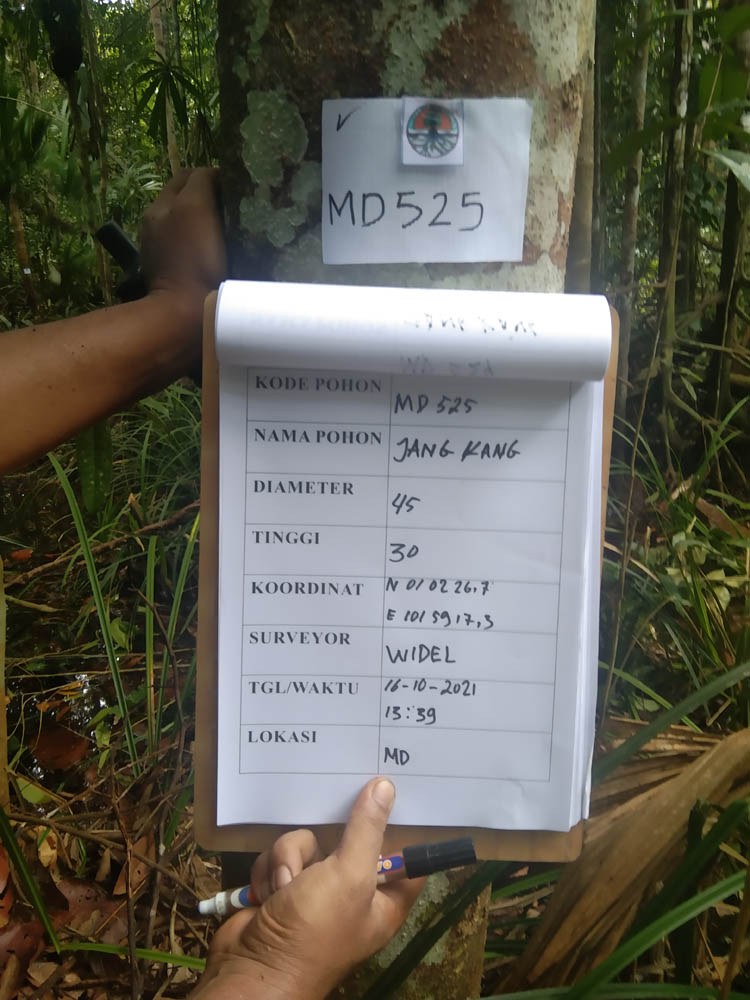 MD525
KODE POHON
MD 525
NAMA POHON
JANG KANG
DIAMETER
45
TINGGI
30
KOORDINAT
N 01 02 26,7
E 101 59 17,3
SURVEYOR
WIDEL
TGL/WAKTU
16-10-2021
13:39
LOKASI
MD